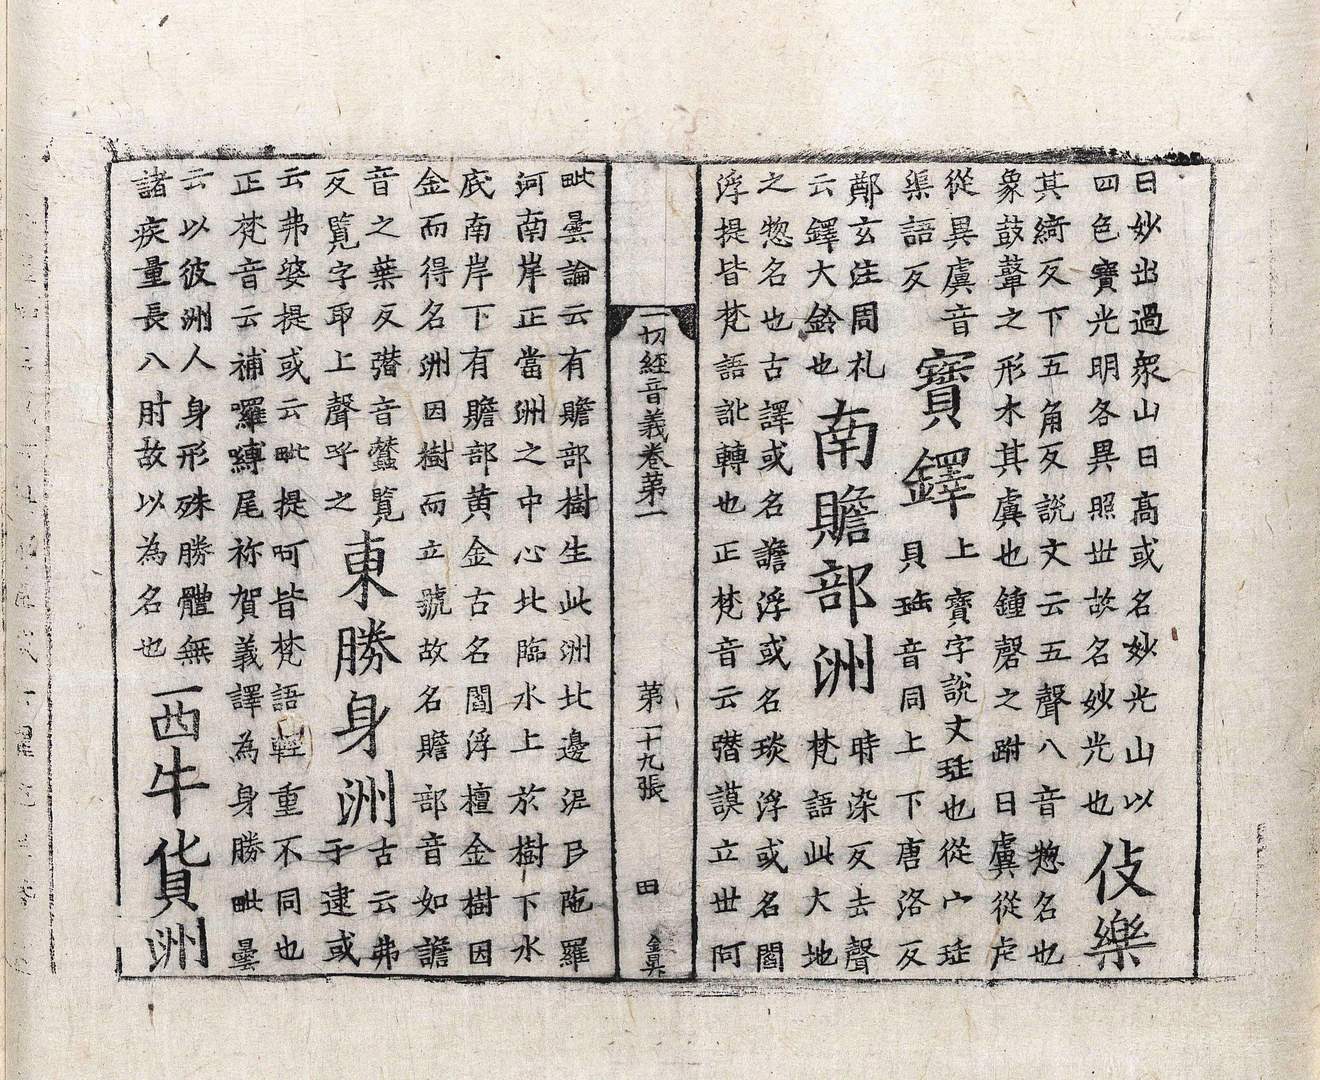 日妙出過衆山日高或名妙光山以
四色寶光明各異照世故名妙光也
伎樂
其綺反下五角反說文云五聲八音惣名也
象鼓鞞之形木其虡也鍾磬之跗曰虡從虍
從異虡音
渠語反
寶鐸
上寶字說文珤也從宀珤
貝珤音同上下唐洛反
鄭玄注周礼
云鐸大鈴也
南贍部洲
時染反去聲
梵語此大地
之惣名也古譯或名譫浮或名琰浮或名閻
浮提皆梵語訛轉也正梵音云潛謨立世阿
一切經音義卷第一
第二十九張
田
金昇
毗曇論云有贍部樹生此洲北邊泥民陁羅
河南岸正當洲之中心北臨水上於樹下水
底南岸下有贍部黄金古名閻浮檀金樹因
金而得名洲因樹而立號故名贍部音如譫
音之葉反潛音蠶覽
反覽字耶上聲呼之
東勝身洲
古云弗
于逮或
云弗婆提或云毗提呵皆梵語輕重不同也
正梵音云補囉嚩尾祢賀義譯為身勝毗曇
云以彼洲人身形殊勝體無
諸疾量長八肘故以為名也
西牛貨洲